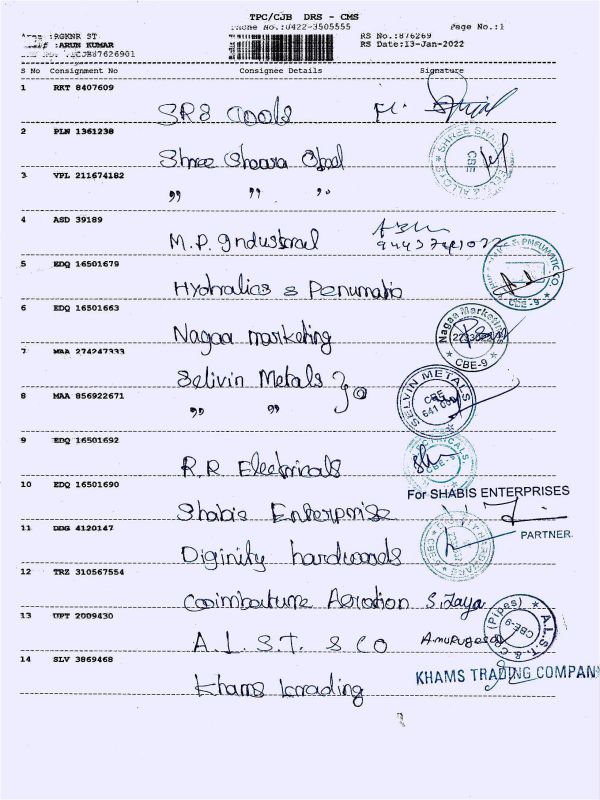 TPC/CJB DRS - CMS
Phone No.:0422-3505555 Page No.:1
:RGKNR ST RS No.:876269
:ARUN KUMAR RS Date:13-Jan-2022
S No Consignment No Consignee Details Signature
1 RKT 8407609 SR8 Tools
2 PLN 1361238 Shree Shaara Steel
SHREE CBE & ALLOYS
3 VPL 211674182 " " "
4 ASD 39189 M.P. Industrial
5 EDQ 16501679 Hydralics & Penumatic
& PNEUMATIC CO. CBE-9
6 EDQ 16501663 Nagaa marketing
Nagaa Marketing CBE-9
7 MAA 274247333 Selivin Metals
8 MAA 856922671 " "
SELVIN METALS CBE
9 EDQ 16501692 R.R Electricals
10 EDQ 16501690 Shabis Enterprise
For SHABIS ENTERPRISES
PARTNER.
11 DDG 4120147 Diginity hardwards
12 TRZ 310567554 Coimbature Aeration S. Jaya
13 UPT 2009430 A.L.S.T. & CO Amurugesan
A.L.S.T. & CO (Pipes) CBE-9
14 SLV 3869468 Khams trading
KHAMS TRADING COMPANY